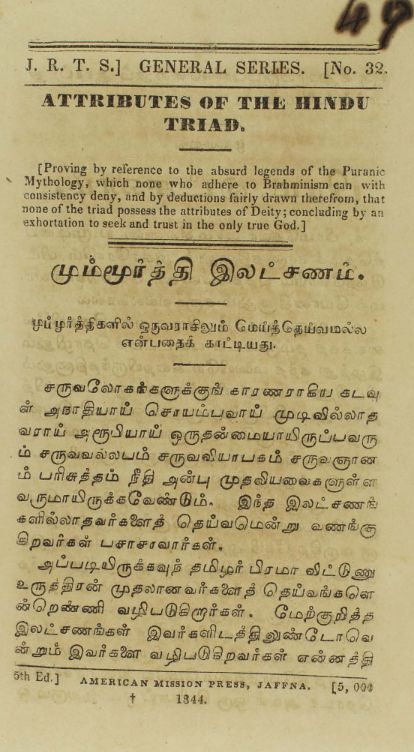 49
J. R. T. S.] GENERAL SERIES. [No. 32.
ATTRIBUTES OF THE HINDU
TRIAD.
[Proving by reference to the absurd legends of the Puranic
Mythology, which none who adhere to Brahminism can with
consistency deny, and by deductions fairly drawn therefrom, that
none of the triad possess the attributes of Deity; concluding by an
exhortation to seek and trust in the only true God.]
மும்மூர்த்தி இலட்சணம்.
மும்மூர்த்திகளில் ஒருவராகிலும் மெய்த்தெய்வமல்ல
என்பதைக் காட்டியது.
சருவலோகங்களுக்குங் காரணராகிய கடவு
ள் அநாதியாய் சொயம்புவாய் முடிவில்லாத
வராய் அரூபியாய் ஒருதன்மையாயிருப்பவரு
ம் சருவவல்லபம் சருவவியாபகம் சருவஞான
ம் பரிசுத்தம் நீதி அன்பு முதலியவைகளுள்ள
வருமாயிருக்கவேண்டும். இந்த இலட்சணங்
களில்லாதவர்களைத் தெய்வமென்று வணங்கு
கிறவர்கள் பசாசாவார்கள்.
அப்படியிருக்கவுந் தமிழர் பிரமா விட்டுணு
உருத்திரன் முதலானவர்களைத் தெய்வங்களெ
ன்றெண்ணி வழிபடுகிறார்கள். மேற்குறித்த
இலட்சணங்கள் இவர்களிடத்திலுண்டோவெ
ன்றும் இவர்களை வழிபடுகிறவர்கள் என்னத்தி
5th Ed.] AMERICAN MISSION PRESS, JAFFNA. [5, 000
† 1844.